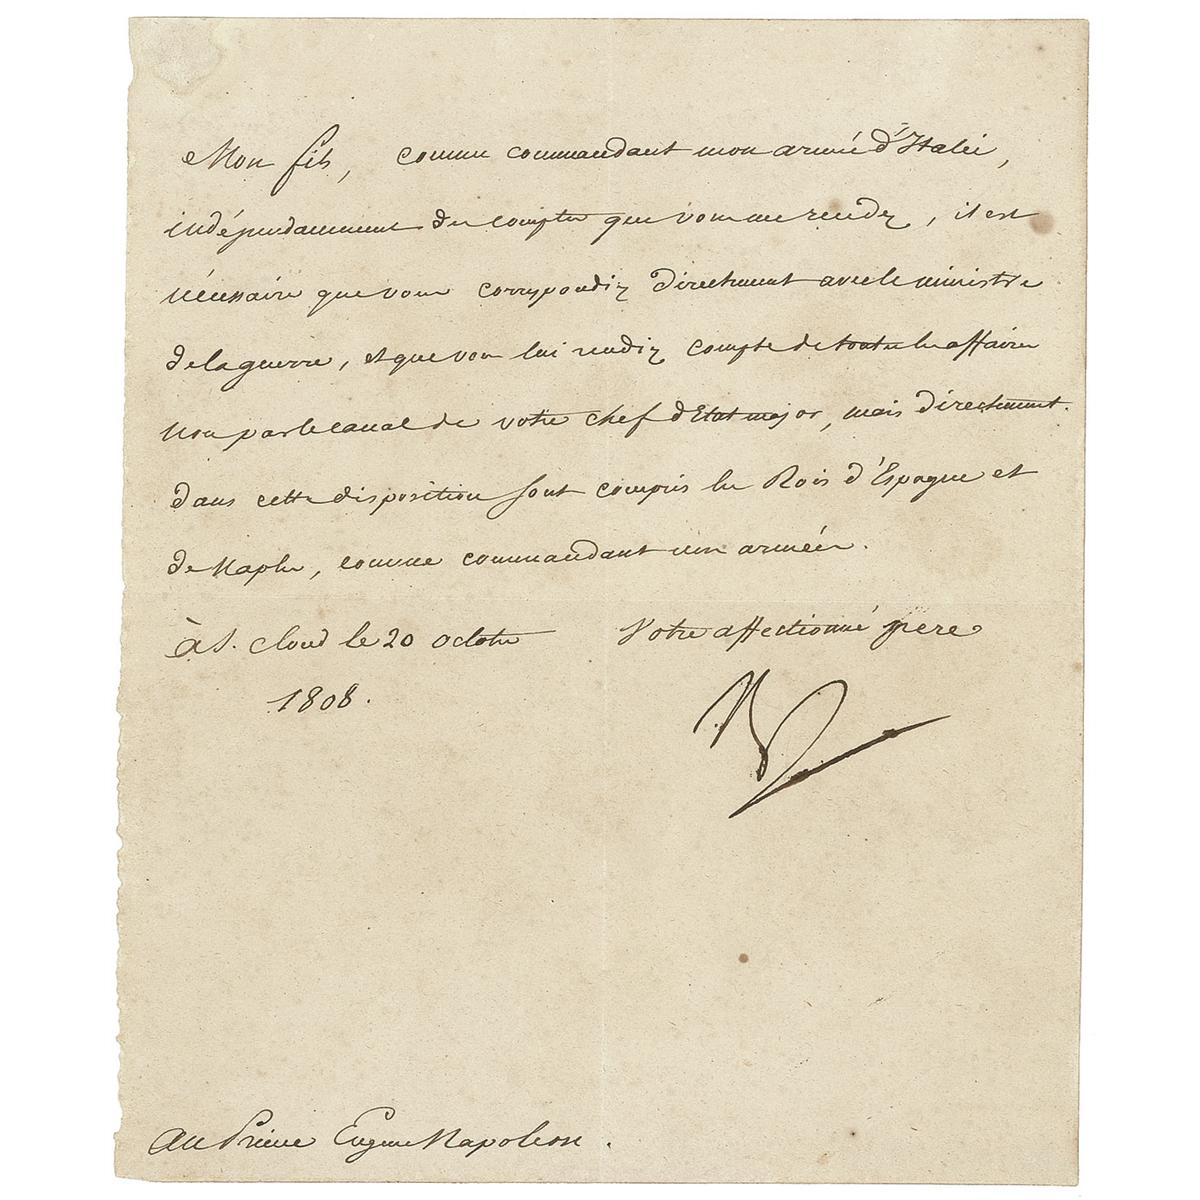 Mon fils, comme commandant mon armée d'Italie,
indépendamment des comptes que vous me rendez, il est
nécessaire que vous correspondiez directement avec le ministre
de la guerre, et que vous lui rendiez compte de toutes les affaires
non par le canal de votre chef d'Etat major, mais directement.
dans cette disposition sont compris les Rois d'Espagne et
de Naples, comme commandant mes armées.
à S. Cloud le 20 octobre
1808.
Votre affectionné père
Au Prince Eugène Napoléon.